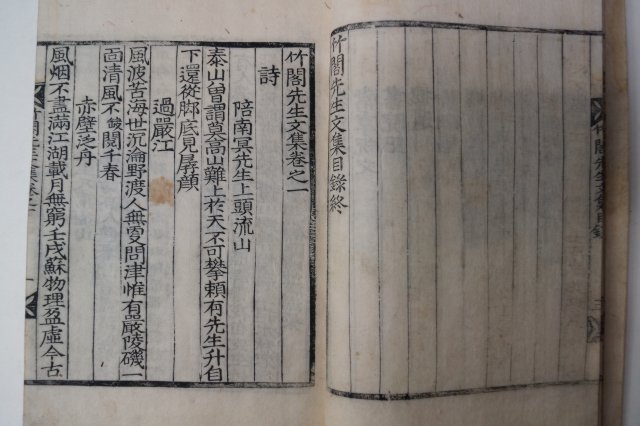 竹閣先生文集目錄
竹閣先生文集目錄終
竹閣先生文集卷之一
詩
陪南冥先生上頭流山
泰山曽謂莫嵩山難上於天不可攀賴有先生升自
下還從脚底見孱顔
過嚴江
風波苦海世沉淪野渡人無更問津惟有嚴陵磯一
面清風不閱千春
赤壁泛舟
風烟不盡滿江湖載月無窮壬戌蘇物理盈虛今古